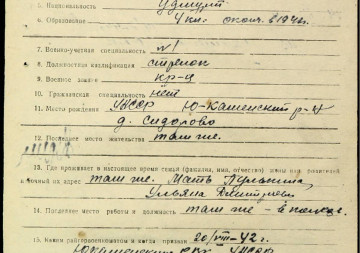 5. Национальность удмурт
6. Образование 4 кл. оконч. в 194 г.
7. Военно-учетная специальность №1
8. Должностная квалификация стрелок
9. Военное звание кр-ц
10. Гражданская специальность нет
11. Место рождения УАССР Ю-Каменский р-н
д. Сидорово
12. Последнее место жительства там же.
13. Где проживает в настоящее время семья (фамилия, имя, отчество) жены или родителей
и точный их адрес там же. Мать
Ульяна Дмитриевн
14. Последнее место работы и должность там же - в колхозе.
15. Каким райгорвоенкоматом и когда призван 20/VIII-42 г.
Юкаменским РВК УАССР